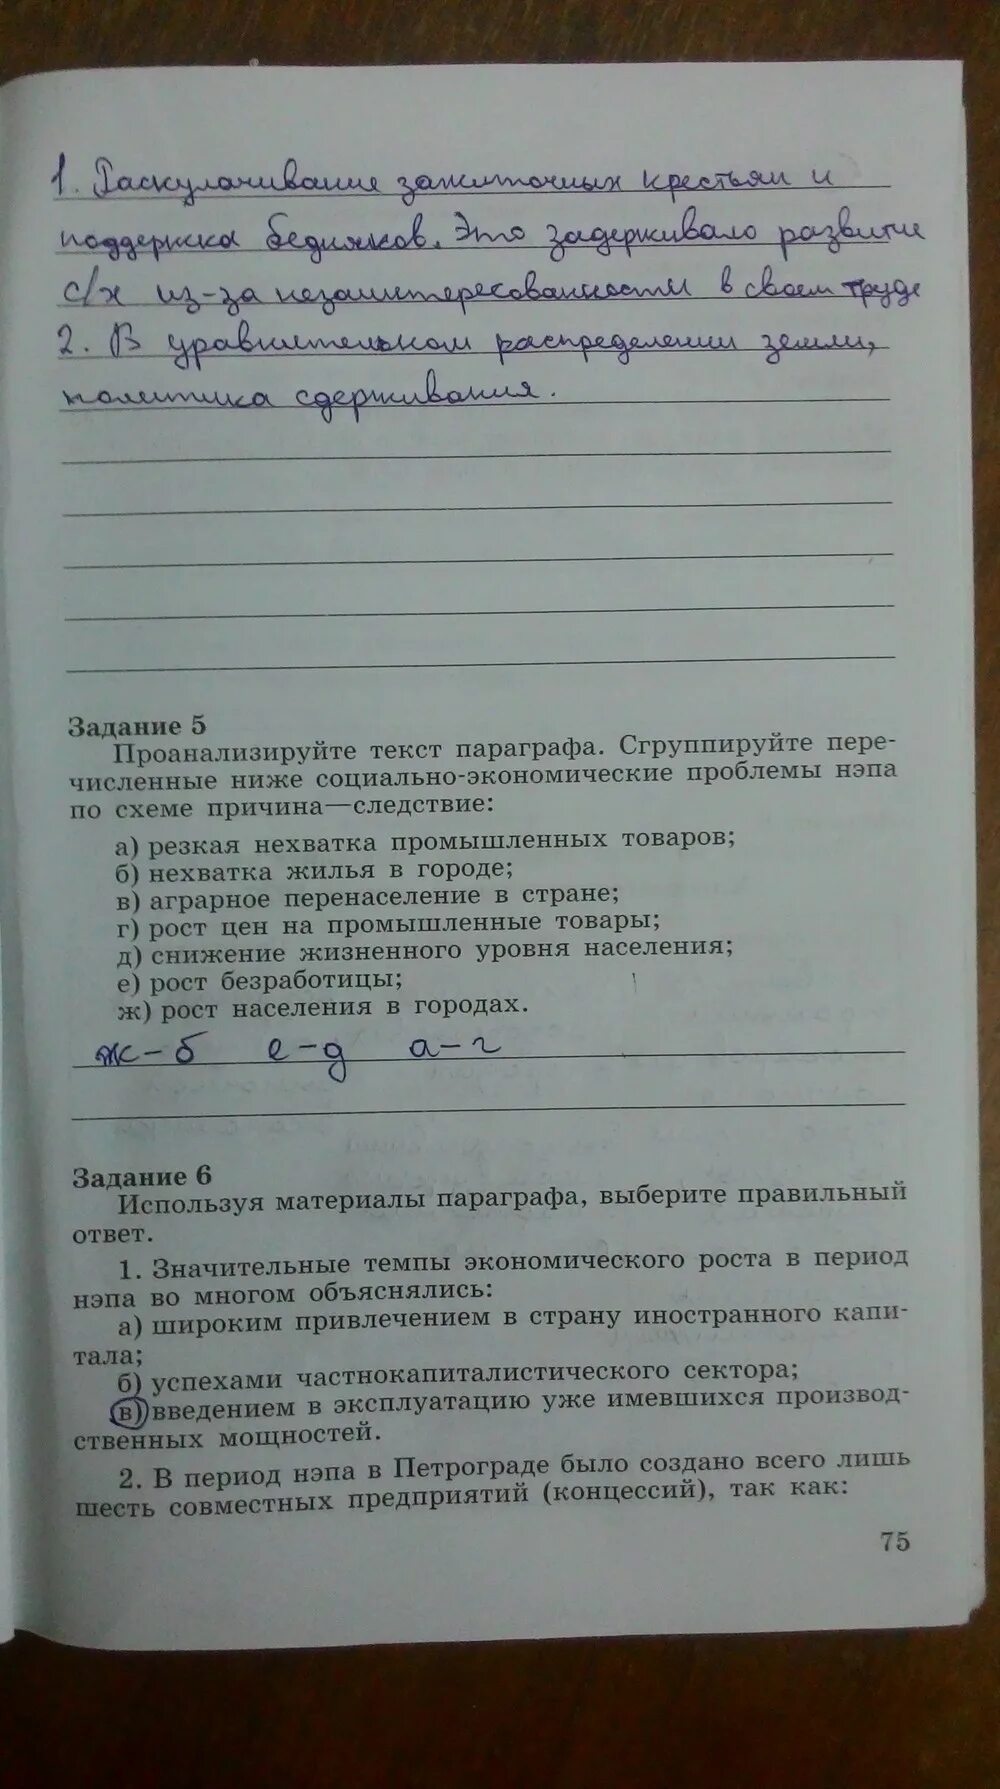 1. Раскулачивание зажиточных крестьян и
поддержка бедняков. Это задерживало развитие
с/х из-за незаинтересованности в своем труде
2. В уравнительном распределении земли,
политика сдерживания.
Задание 5
Проанализируйте текст параграфа. Сгруппируйте пере-
численные ниже социально-экономические проблемы нэпа
по схеме причина—следствие:
а) резкая нехватка промышленных товаров;
б) нехватка жилья в городе;
в) аграрное перенаселение в стране;
г) рост цен на промышленные товары;
д) снижение жизненного уровня населения;
е) рост безработицы;
ж) рост населения в городах.
ж-б е-д а-г
Задание 6
Используя материалы параграфа, выберите правильный
ответ.
1. Значительные темпы экономического роста в период
нэпа во многом объяснялись:
а) широким привлечением в страну иностранного капи-
тала;
б) успехами частнокапиталистического сектора;
в) введением в эксплуатацию уже имевшихся производ-
ственных мощностей.
2. В период нэпа в Петрограде было создано всего лишь
шесть совместных предприятий (концессий), так как:
75